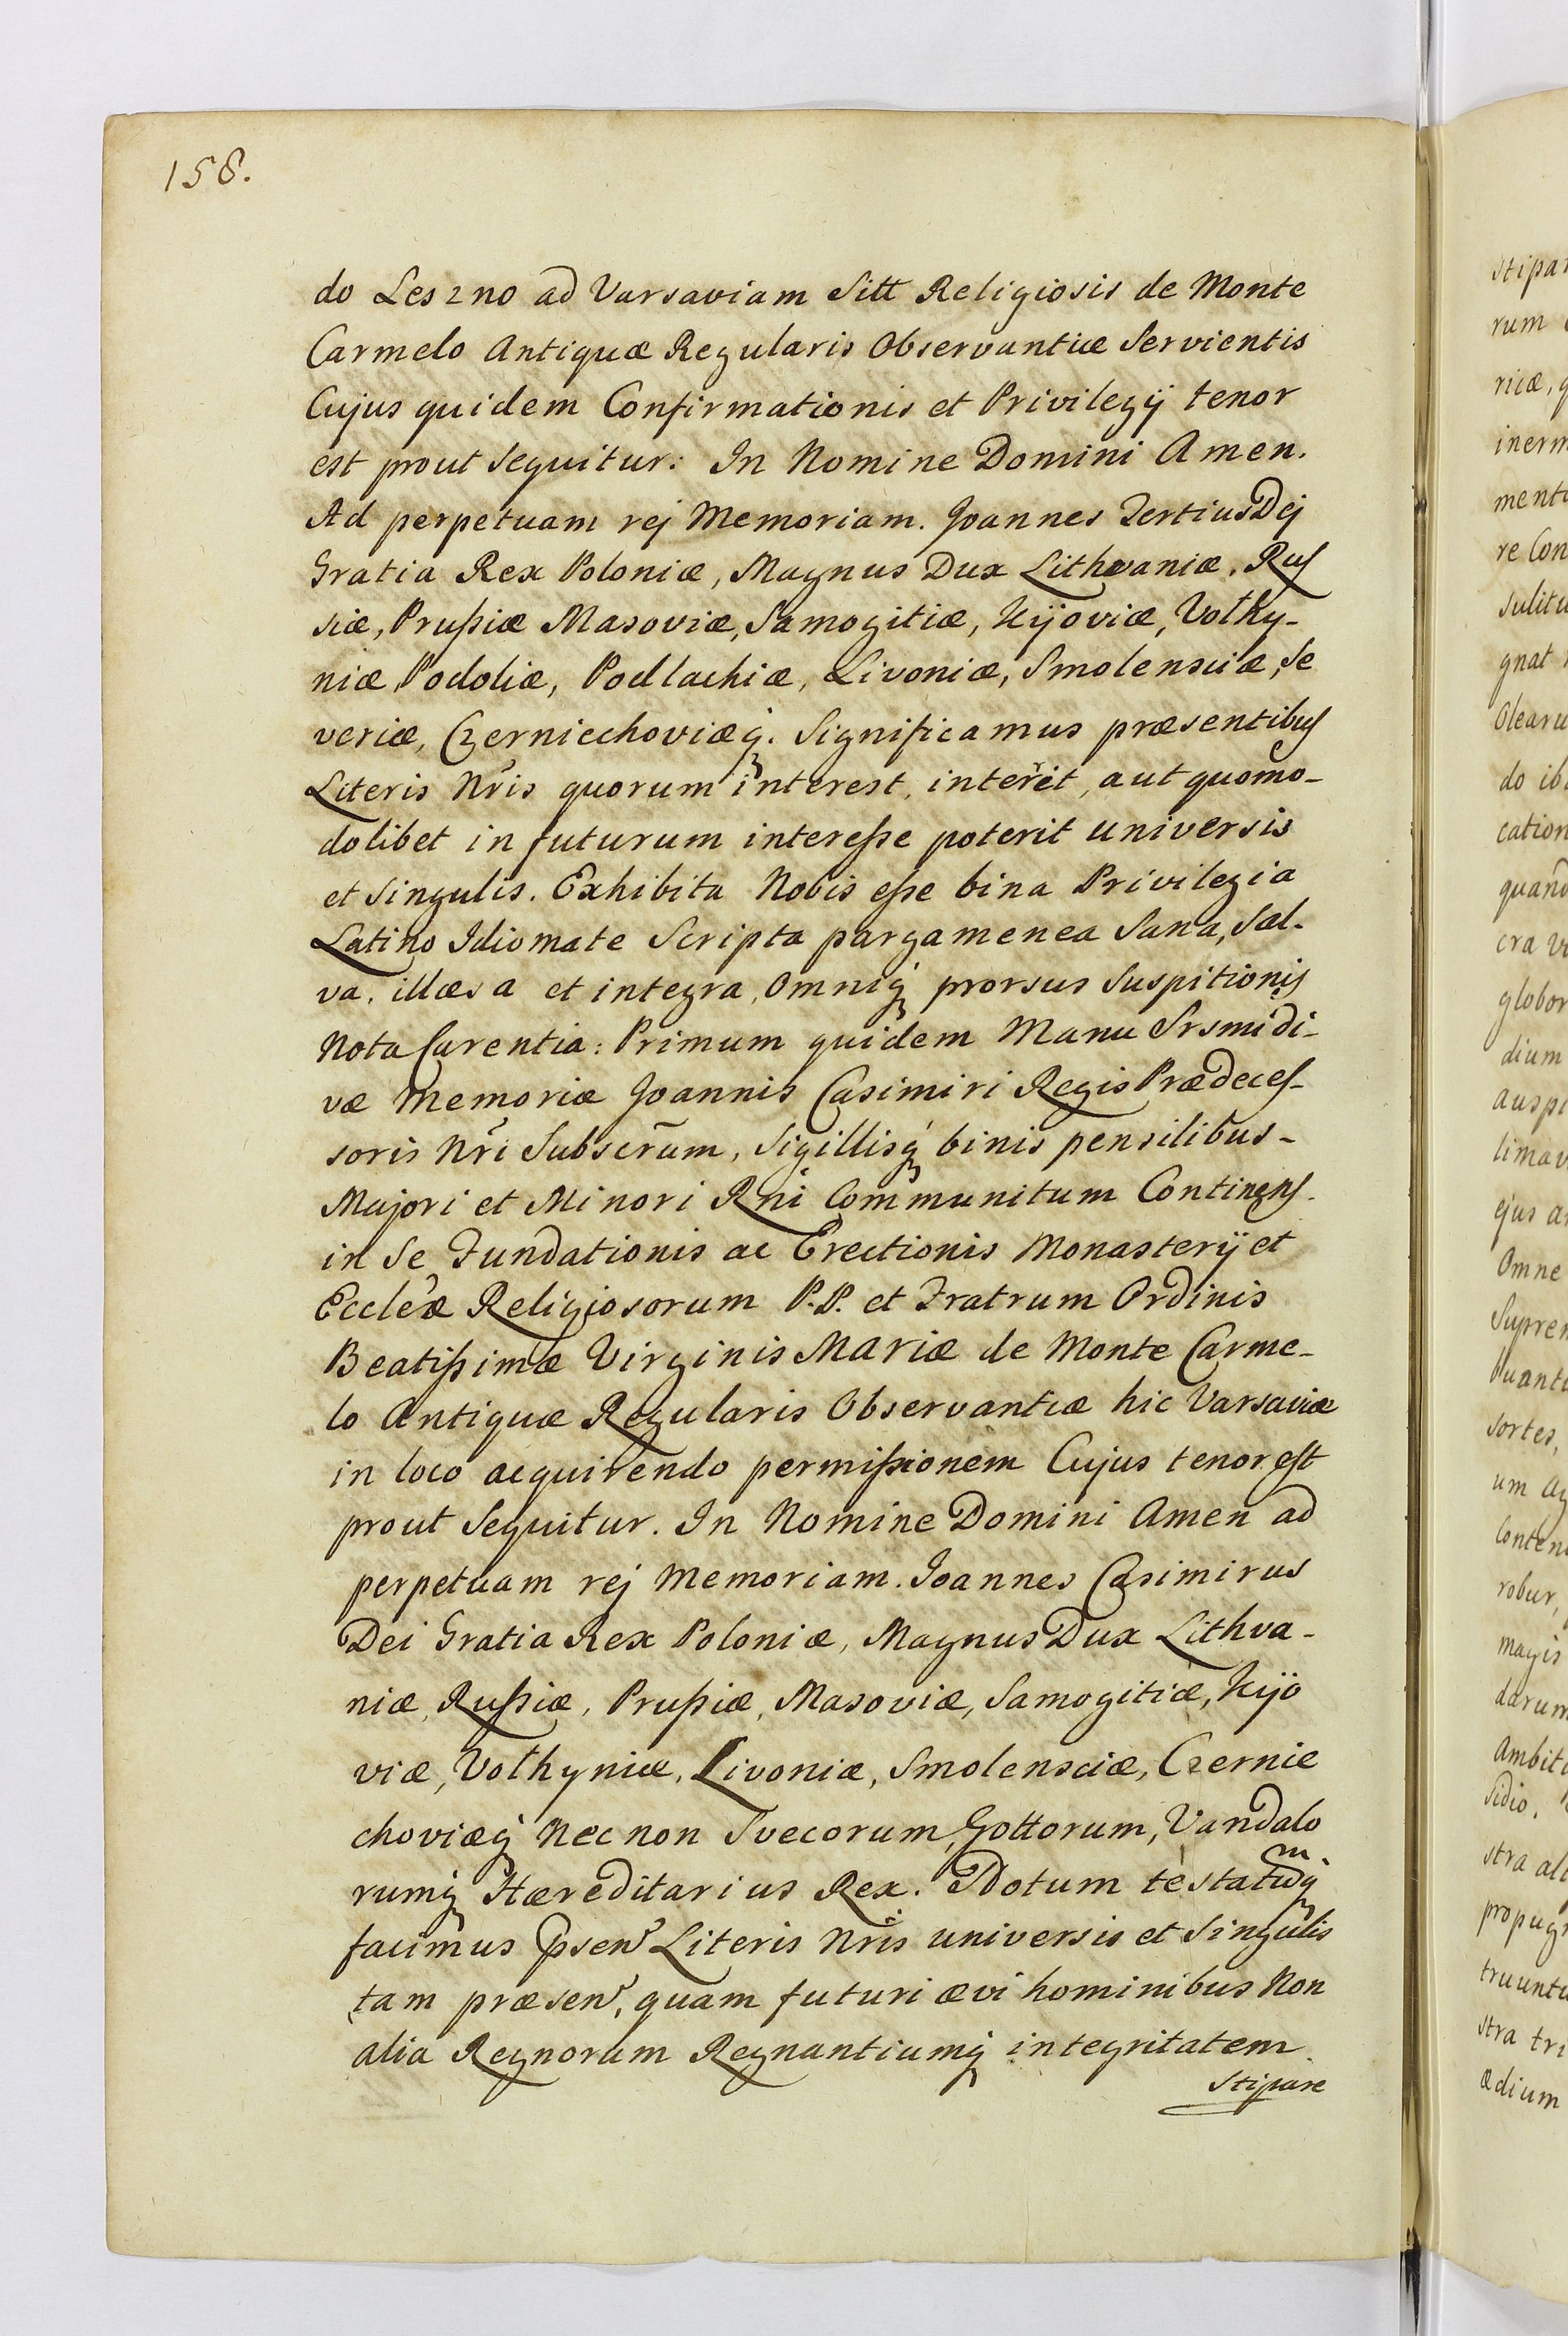 158.
do Leszno ad Varsaviam Sitt Religiosis de Monte
Carmelo Antiquæ Regularis Observantiæ Servientis
Cujus quidem Confirmationis et Privilegÿ tenor
est prout Sequitur: In Nomine Domini Amen.
Ad perpetuam rej Memoriam. Joannes Tertius Dej
Gratia Rex Poloniæ, Magnus Dux Lithvaniæ, Ruſ
siæ, Pruſsiæ Masoviæ, Samogitiæ, Kijoviæ, Volhy-
niæ, Podoliæ, Podlachiæ, Livoniæ, Smolensciæ, Se
veriæ, Czerniechoviæq́. Significamus præsentibuſ
Literis Nr̃is quorum interest, interit, aut quomo-
dolibet in futurum intereſse poterit universis
et Singulis. Exhibita Nobis eſse bina Privilegia
Latino Idiomate Scripta pargamenea Sana, Sal-
va, illæsa et integra, Omniq́ prorsus Suspitioniſ
Nota Carentia: Primum quidem Manu Srsmi di-
væ Memoriæ Joannis Casimiri Regis Prædeceſ-
soris Nr̃i Subscr̃um, Sigillisq́ binis pensilibus-
Majori et Minori Rni Communitum Continenſ.
in Se Fundationis ac Erectionis Monasterÿ et
Eccleæ Religiosorum P.P. et Fratrum Ordinis
Beatiſsimæ Virginis Mariæ de Monte Carme-
lo Antiquæ Regularis Observantiæ hic Varsaviæ
in loco acquirendo permiſsionem Cujus tenor eſt
prout Sequitur. In Nomine Domini Amen ad
perpetuam rej Memoriam. Joannes Casimirus
Dei Gratia Rex Poloniæ, Magnus Dux Lithva-
niæ, Ruſsiæ, Pruſsiæ, Masoviæ, Samogitiæ, Kijo
viæ, Volhyniæ, Livoniæ, Smolensciæ, Czernie
choviæq́ Nec non Svecorum, Gottorum, Vandalo
rumq́ Hæreditarius Rex. Notum testatumq́
facimus psen̾ Literis Nr̃is universis et Singulis
tam præsen̾, quam futuri ævi hominibus Non
alia Regnorum Regnantiumq́ integritatem
Stipare